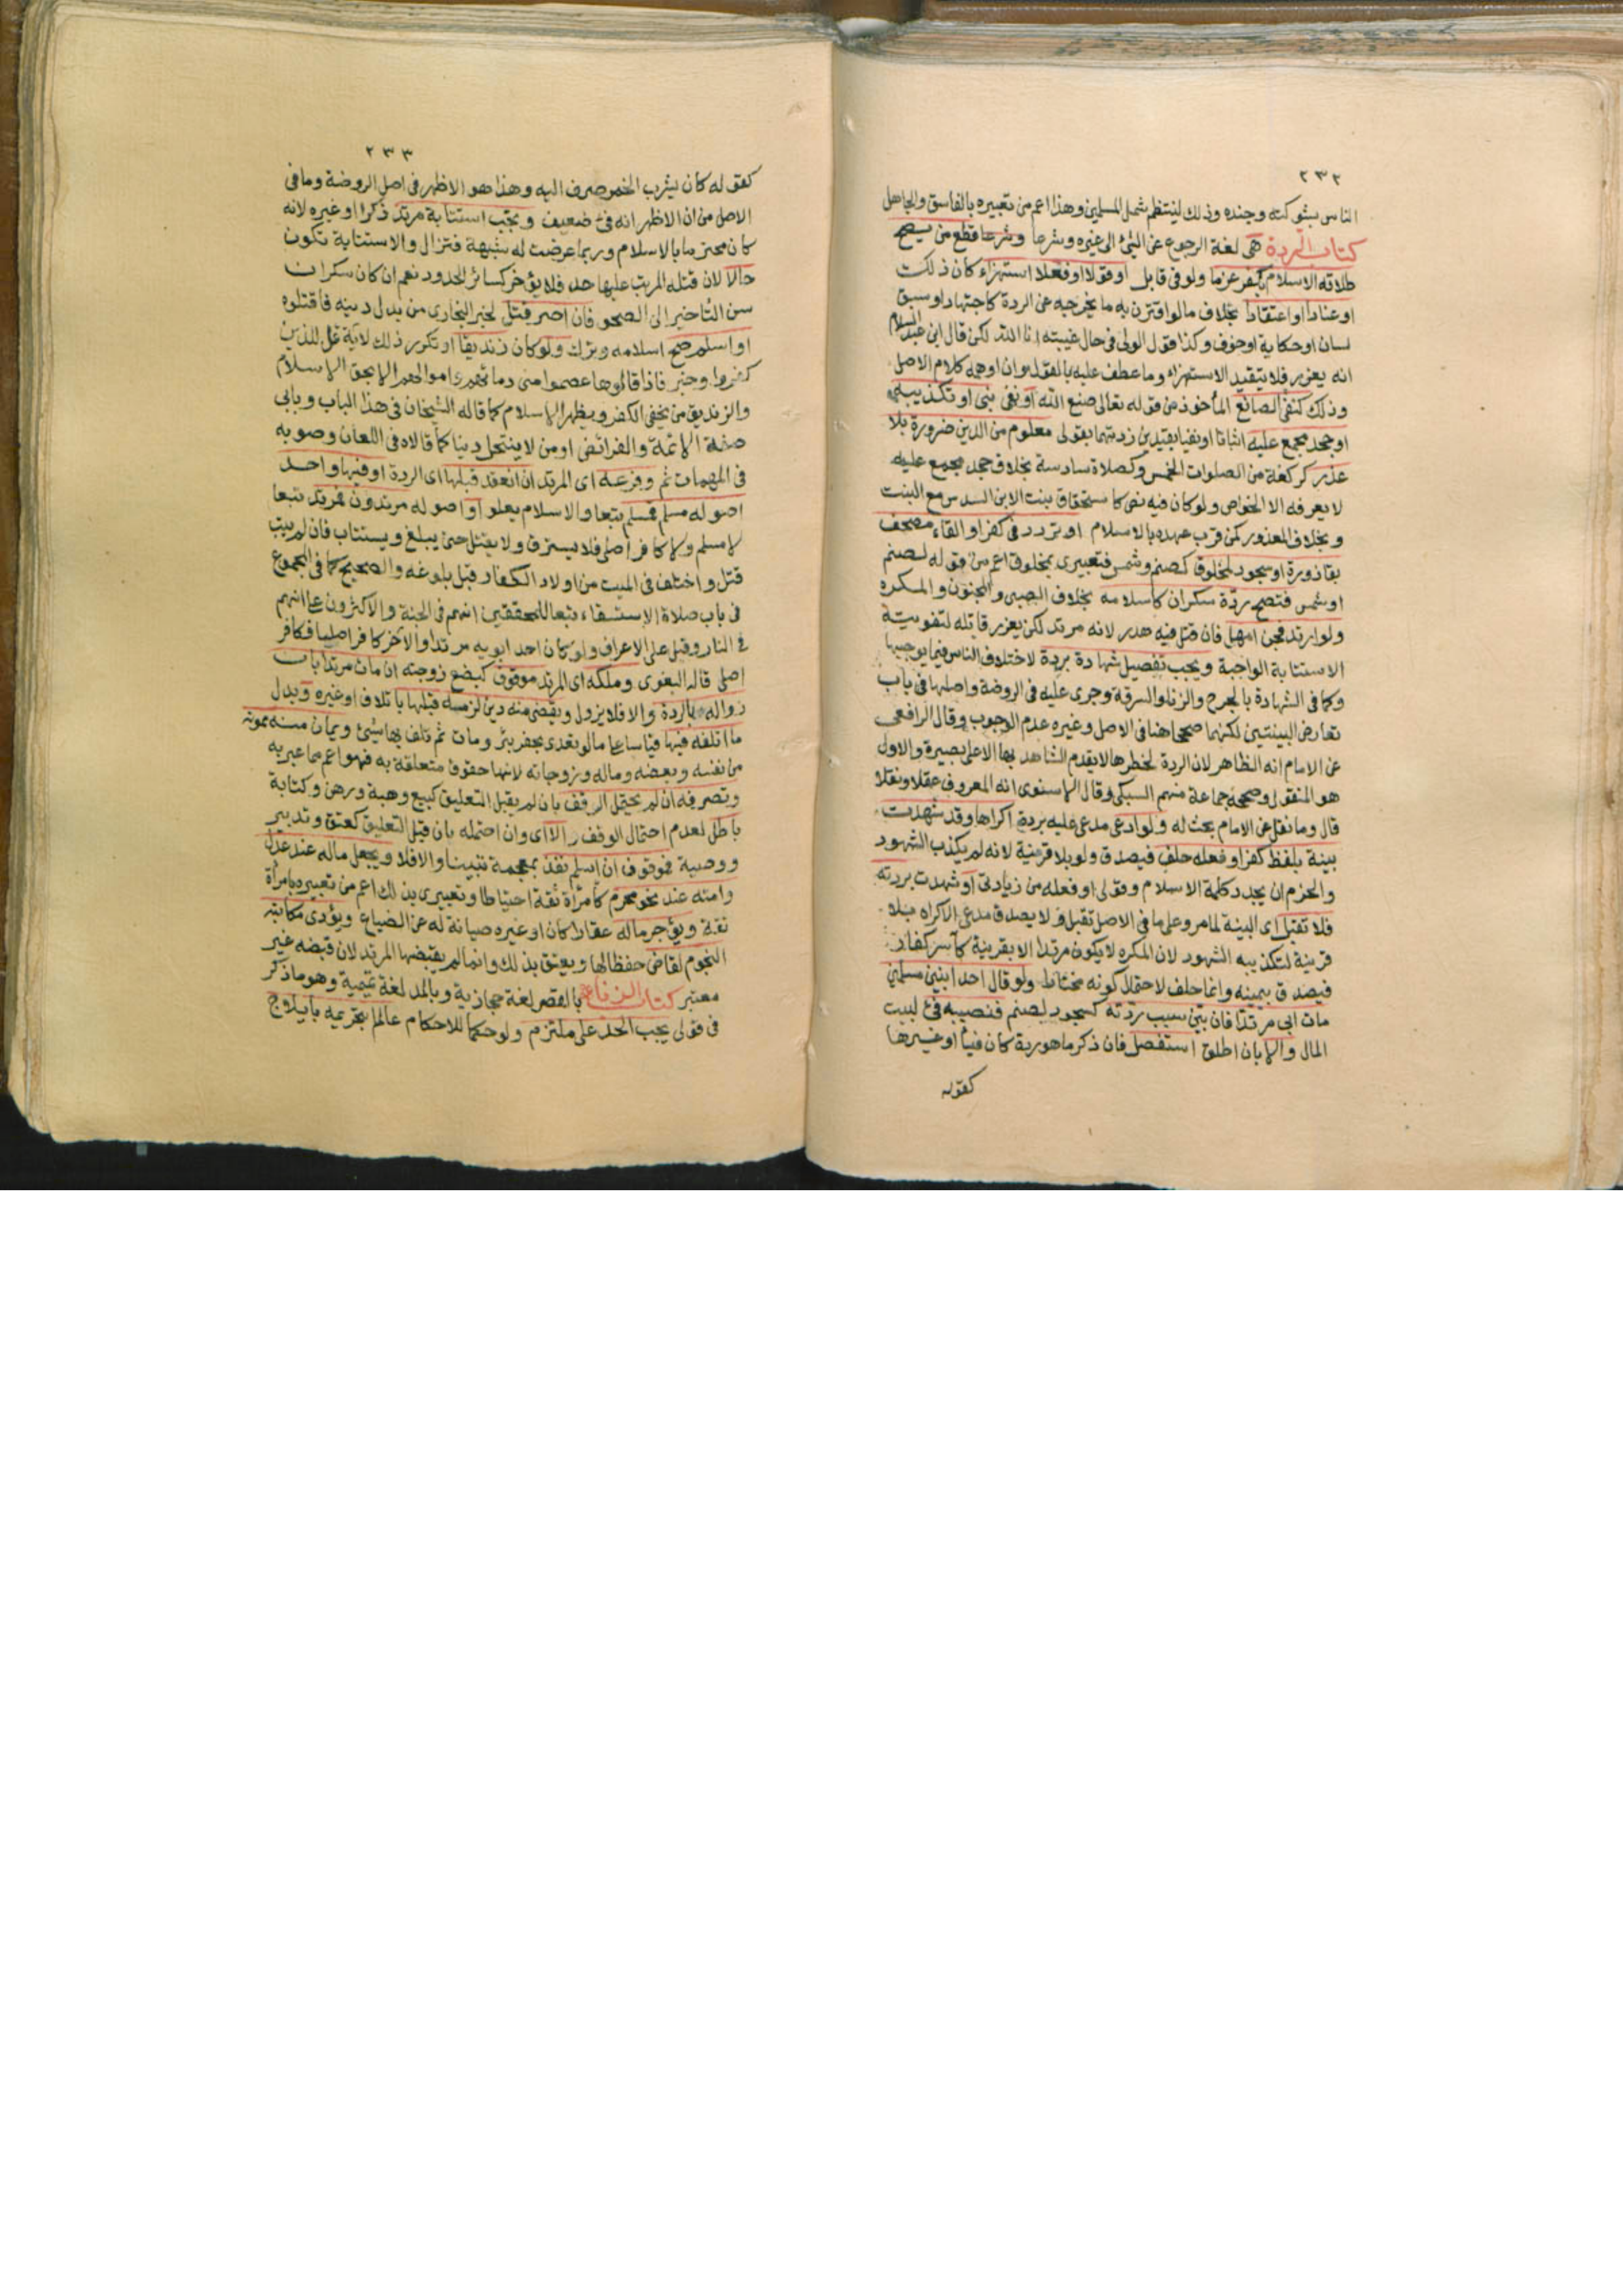 ٢٣٢
الناس بشوكته وجنده وذلك لينتظم شمل المسلمين وهذا اعم من تعبيره بالفاسق والجاهل
كتاب الردة هي لغة الرجوع عن الشئ الى غيره وشرعا قطع من يصح
طلاقه الاسلام بكفر عزما ولو في قابل او قولا او فعلا استهزاء كان ذلك
او عنادا او اعتقادا بخلاف ما لو اقترن به ما يخرجه عن الردة كاجتهاد او سبق
لسان او حكاية او خوف وكذا قول الولى في حال غيبته انا الله لكن قال ابن عبد السلام
انه يعزر فلا يتقيد الاستهزاء وما عطف عليه بالقول وان اوهمه كلام الاصل
وذلك كنفى الصانع المأخوذ من قوله تعالى صنع الله او نفى نبى او تكذيبه
او جحد مجمع عليه اثباتا او نفيا بقيدين زدتهما بقولى معلوم من الدين ضرورة بلا
عذر كركعة من الصلوات الخمس وكصلاة سادسة بخلاف جحد مجمع عليه
لا يعرفه الا الخواص ولو كان فيه نص كاستحقاق بنت الابن السدس مع البنت
وبخلاف المعذور كمن قرب عهده بالاسلام او تردد في كفر او القاء مصحف
بقاذورة او سجود لمخلوق كصنم وشمس فتعبيرى بمخلوق اعم من قوله لصنم
او شمس فتصح ردة سكران كاسلامه بخلاف الصبى والمجنون والمكره
ولو ارتد فجن امهل فان قتل فيه هدر لانه مرتد لكن يعزر قاتله لتفويته
الاستتابة الواجبة ويجب تفصيل شهادة بردة لاختلاف الناس فيما يوجبها
وكما في الشهادة بالجرح والزنا والسرقة وجرى عليه في الروضة واصلها في باب
تعارض البينتين لكنهما صححا هنا في الاصل وغيره عدم الوجوب وقال الرافعى
عن الامام انه الظاهر لان الردة لخطرها لا يقدم الشاهد بها الا على بصيرة والاول
هو المنقول وصححه جماعة منهم السبكى وقال الاسنوى انه المعروف عقلا ونقلا
قال وما نقل عن الامام بحث له ولو ادعى مدعى عليه بردة اكراها وقد شهدت
بينة بلفظ كفر او فعله حلف فيصدق ولو بلا قرينة لانه لم يكذب الشهود
والحزم ان يجدد كلمة الاسلام وقولى او فعله من زيادتى او شهدت بردته
فلا تقبل اى البينة لما مر وعلى ما في الاصل تقبل ولا يصدق مدعى الاكراه بلا
قرينة لتكذيبه الشهود لان المكره لا يكون مرتدا الا بقرينة كأسر كفار
فيصدق بيمينه وانما حلف لاحتمال كونه مختارا ولو قال احد ابنين مسلمين
مات ابى مرتدا فان بين سبب ردته كسجود لصنم فنصيبه فئ لبيت
المال والا بان اطلق استفصل فان ذكر ما هو ردة كان فيئا او غيرها
كقوله
٢٣٣
كقوله كان يشرب الخمر صرف اليه وهذا هو الاظهر في اصل الروضة وما في
الاصل من ان الاظهر انه فئ ضعيف وتجب استتابة مرتد ذكرا او غيره لانه
كان محترما بالاسلام وربما عرضت له شبهة فتزال والاستتابة تكون
حالا لان قتله المرتب عليها حد فلا يؤخر كسائر الحدود نعم ان كان سكران
سن التأخير الى الصحو فان اصر قتل لخبر البخارى من بدل دينه فاقتلوه
او اسلم صح اسلامه وترك ولو كان زنديقا او تكرر ذلك لآية قل للذين
كفروا وخبر فاذا قالوها عصموا منى دماءهم واموالهم الا بحق الاسلام
والزنديق من يخفى الكفر ويظهر الاسلام كما قاله الشيخان في هذا الباب وبابى
صفة الائمة والفرائض او من لا ينتحل دينا كما قالاه في اللعان وصوبه
في المهمات ثم وفرعه اى المرتد ان انعقد قبلها اى الردة او فيها واحد
اصوله مسلم فمسلم تبعا والاسلام يعلو او اصوله مرتدون فمرتد تبعا
لا مسلم ولا كافر اصلى فلا يسترق ولا يقتل حتى يبلغ ويستتاب فان لم يتب
قتل واختلف في الميت من اولاد الكفار قبل بلوغه والصحيح كما في المجموع
في باب صلاة الاستسقاء تبعا للمحققين انهم في الجنة والاكثرون على انهم
في النار وقيل على الاعراف ولو كان احد ابويه مرتدا والآخر كافر اصليا فكافر
اصلى قاله البغوى وملكه اى المرتد موقوف كبضع زوجته ان مات مرتدا بان
زواله بالردة والا فلا يزول ويقضى منه دين لزمه قبلها باتلاف او غيره وبدل
ما اتلفه فيها قياسا على ما لو تعدى بحفر بئر ومات ثم تلف بها شئ ويمان منه ممونه
من نفسه وبعضه وماله وزوجاته لانها حقوق متعلقة به فهو اعم مما عبر به
وتصرفه ان لم يحتمل الوقف بان لم يقبل التعليق كبيع وهبة ورهن وكتابة
باطل لعدم احتمال الوقف والا اى وان احتمله بان قبل التعليق كعتق وتدبير
ووصية فموقوف ان اسلم نفذ بمعجمة تبينا والا فلا ويجعل ماله عند عدل
وامته عند نحو محرم كامرأة ثقة احتياطا وتعبيرى بذلك اعم من تعبيره بامرأة
ثقة ويؤجر ماله عقارا كان او غيره صيانة له عن الضياع ويؤدى مكاتبه
النجوم لقاض حفظا لها ويعتق بذلك وانما لم يقبضها المرتد لان قبضه غير
معتبر كتاب الزنا بالقصر لغة حجازية وبالمد لغة تميمية وهو ما ذكر
في قولى يجب الحد على ملتزم ولو حكما للاحكام عالم بتحريمه بايلاج